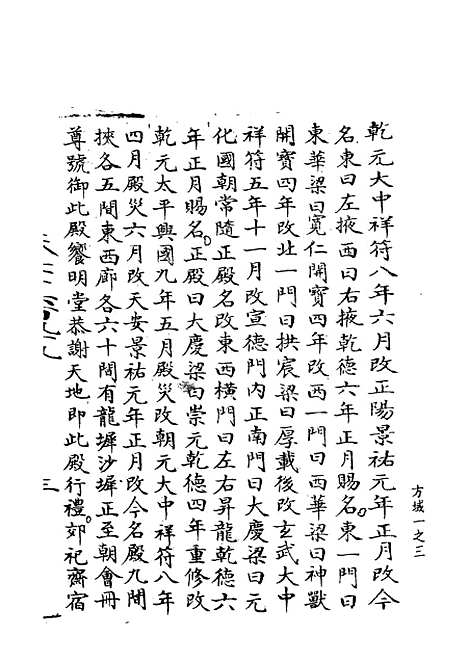 乾元大中祥符八年六月改正陽景祐元年正月改今
名東曰左掖西曰右掖乾德六年正月賜名東一門曰
東華梁曰寬仁開寶四年改西一門曰西華梁曰神獸
開寶四年改北一門曰拱宸梁曰厚載後改玄武大中
祥符五年十一月改宣德門內正南門曰大慶梁曰元
化國朝常隨正殿名改東西橫門曰左右昇龍乾德六
年正月賜名正殿曰大慶梁曰崇元乾德四年重修改
乾元太平興國九年五月殿災改朝元大中祥符八年
四月殿災六月改天安景祐元年正月改今名殿九間
挾各五間東西廊各六十間有龍墀沙墀正至朝會冊
尊號御此殿饗明堂恭謝天地即此殿行禮郊祀齋宿
三
方域一之三